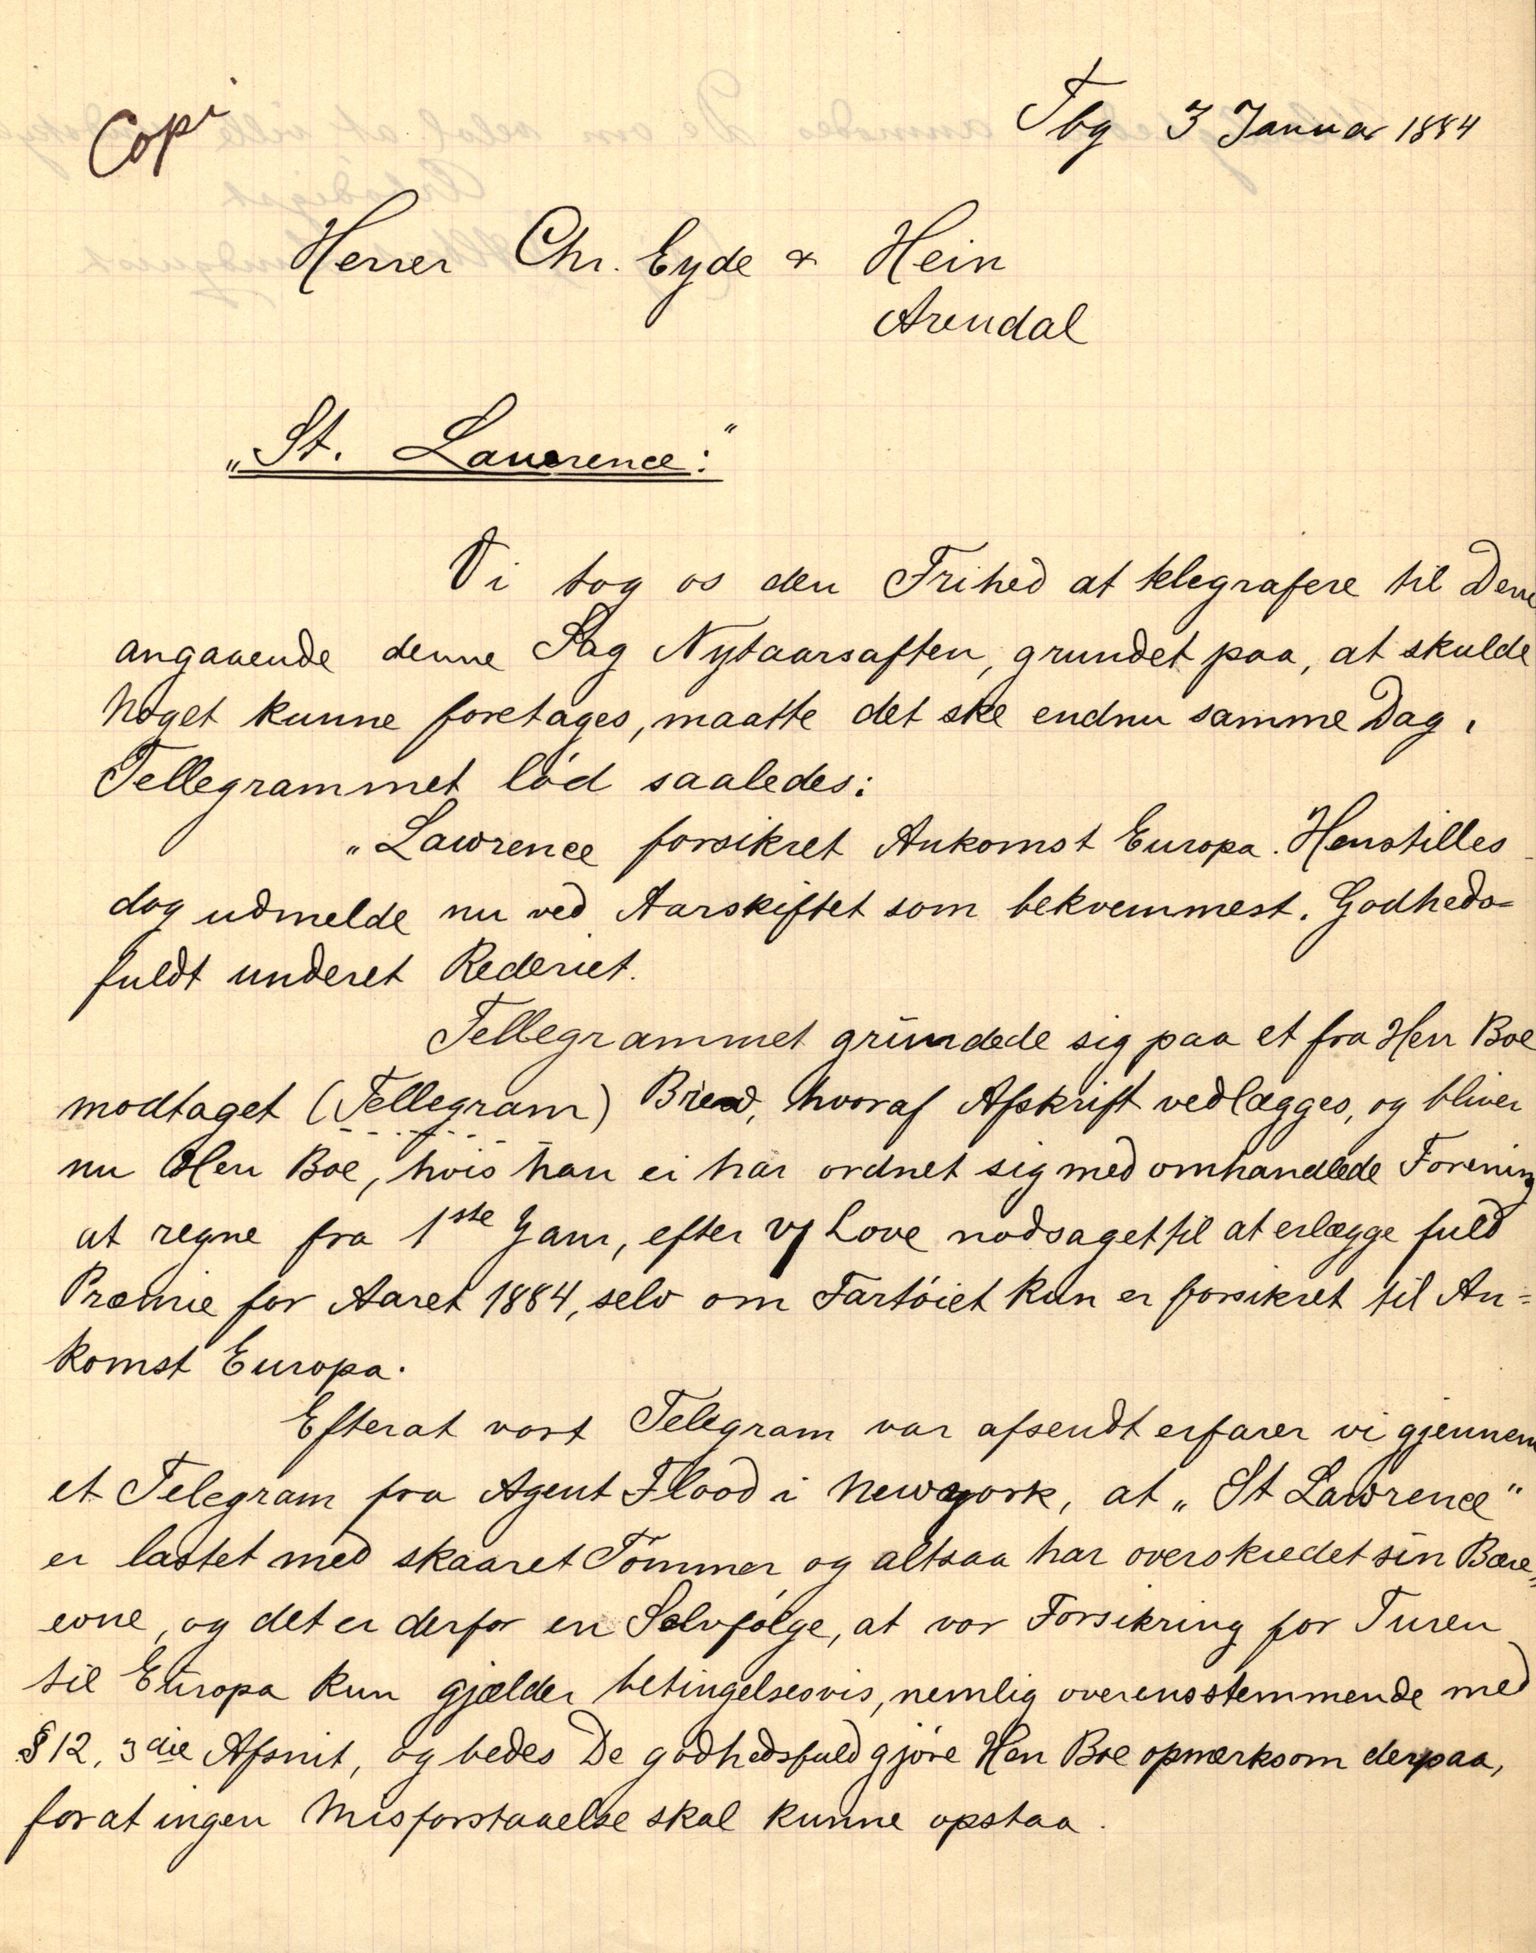 Copi
Tbg 3 Januar 1884
Herrer Chr. Eyde & Hein
Arendal
„St. Lawrence:"
Vi tog os den Frihed at telegrafere til Dem
angaaende denne Sag Nytaarsaften, grundet paa, at skulde
noget kunne foretages, maatte det ske endnu samme Dag.
Tellegrammet lød saaledes:
„Lawrence forsikret Ankomst Europa. Henstilles
dog udmelde nu ved Aarskiftet som bekvemmest. Godheds=
fuldt underet Rederiet.
Tellegrammet grundede sig paa et fra Herr Boe
modtaget (Tellegram) Brev, hvoraf Afskrift vedlægges, og bliver
nu Herr Boe, hvis han ei har ordnet sig med omhandlede Forening
at regne fra 1ste Janr, efter v/ Love nødsaget til at erlægge fuld
Præmie for Aaret 1884, selv om Fartøiet kun er forsikret til An=
komst Europa.
Efterat vort Telegram var afsendt erfarer vi gjennem
et Telegram fra Agent Flood i Newyork, at „St Lawrence"
er lastet med skaaret Tømmer og altsaa har overskredet sin Bære„
evne, og det er derfor en Selvfølge, at vor Forsikring for Turen
til Europa kun gjælder betingelsesvis, nemlig overensstemmende med
§ 12, 3die Afsnit, og bedes De godhedsfuld gjøre Herr Boe opmærksom derpaa,
forat ingen Misforstaaelse skal kunne opstaa.